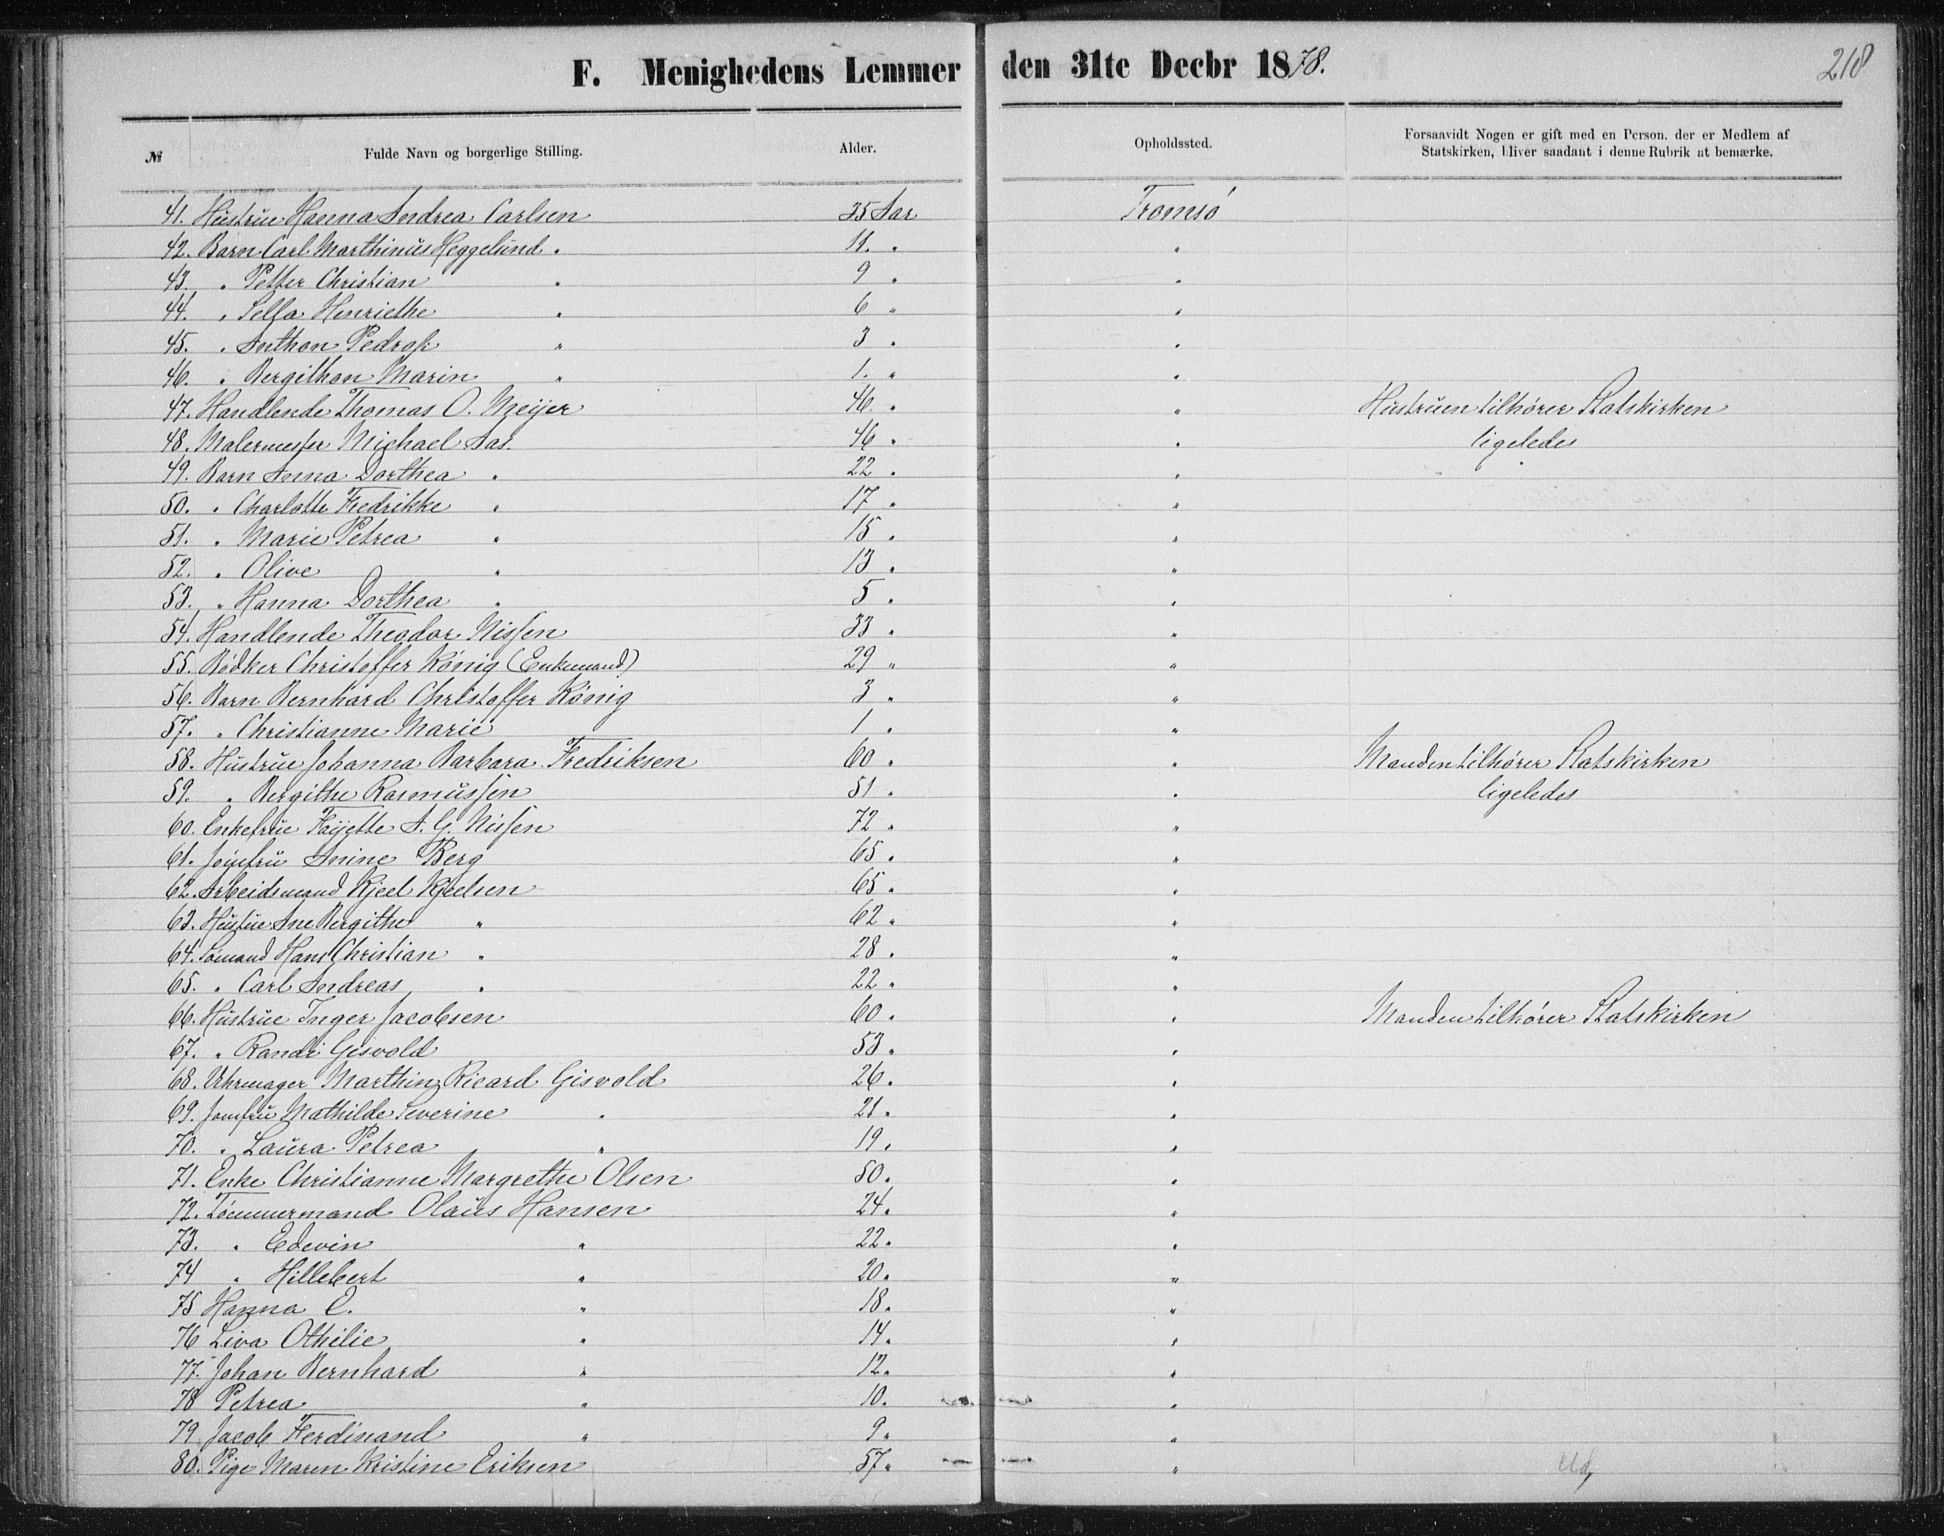 F. Menighedens Lemmer den 31te Decbr 1878. 218
№ Fulde Navn og borgerlige Stilling. Alder. Opholdssted. Forsaavidt Nogen er gift med en Person, der er Medlem af
Statskirken, bliver saadant i denne Rubrik at bemærke.
41. Hustrue Hanna Andrea Carlsen 35 Aar Tromsø
42. Barn Carl Marthinus Heggelund " 11. " "
43. " Petter Christian " 9 " "
44. " Selfa Henriethe " 6 " "
45. " Anthon Pedrof " 3 " "
46. " Bergithon Marin " 1. " "
47. Handlende Thomas O. Meijer 46. " " Hustruen tilhører Statskirken
48. Malermester Michael Aas. 46 " " ligeledes
49. Barn Anna Dorthea " 22 " "
50. " Charlotte Fredrikke " 17 " "
51. " Marie Petrea " 15 " "
52. " Olive " 13 " "
53. " Hanna Dorthea " 5 " "
54. Handlende Theodor Nissen 33 " "
55. Bødker Christoffer König (Enkemand) 29 " "
56. Barn Bernhard Christoffer König 3 " "
57. " Christianne Marie 1 " "
58. Hustrue Johanna Barbara Fredriksen 60 " " Manden tilhører Statskirken
59. " Bergithe Rasmussen 51 " " ligeledes
60. Enkefrue Fayette A. G. Nissen 72 " "
61. Jomfru Anine Berg 65 " "
62. Arbeidsmand Kjeel Kjeelsen 65 " "
63. Hustue Ane Bergithe " 62 " "
64. Sømand Hans Christian " 28 " "
65. " Carl Andreas " 22 " "
66. Hustrue Inger Jacobsen 60 " " Manden tilhører Statskirken
67. " Randi Gisvold 53 " "
68. Uhrmager Marthin Ricard Gisvold 26 " "
69. Jomfru Mathilde Severine " 21 " "
70. " Laura Petrea " 19 " "
71. Enke Christianne Margrethe Olsen 50 " "
72. Tømmermand Olaus Hansen 24 " "
73. " Edevin " 22 " "
74 " Hillebert " 20 " "
75 Hanna E. " 18 " "
76 Liva Othilie " 14 " "
77. Johan Bernhard " 12 " "
78 Petrea " 10 " "
79 Jacob Ferdinand " 9 " "
80. Pige Maren Kristine Eriksen 57 " "